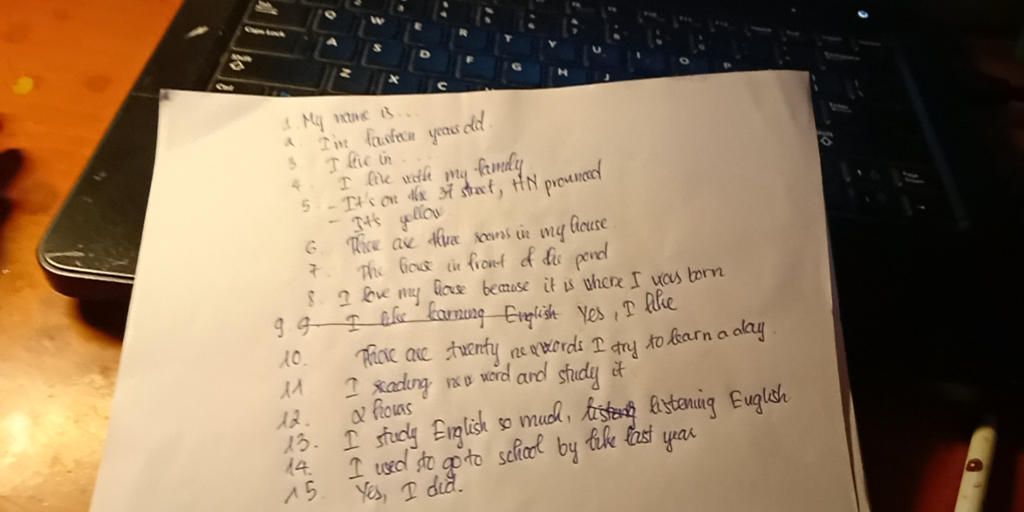 Caps Lock
Q W E R T Y U
A S D F G H J
Z X C
1. My name is...
2. I'm fourteen years old.
3. I live in ....
4. I live with my family
5. - It's on the street, HN
- It's yellow
6. There are three rooms in my house
7. The house in front of the pond
8. I love my house because it is where I was born
9. Yes, I like
10. There are twenty new words I try to learn a day.
11. I reading new word and study it
12. 2 hours
13. I study English so much, listening English
14. I used to go to school by last year
15. Yes, I did.